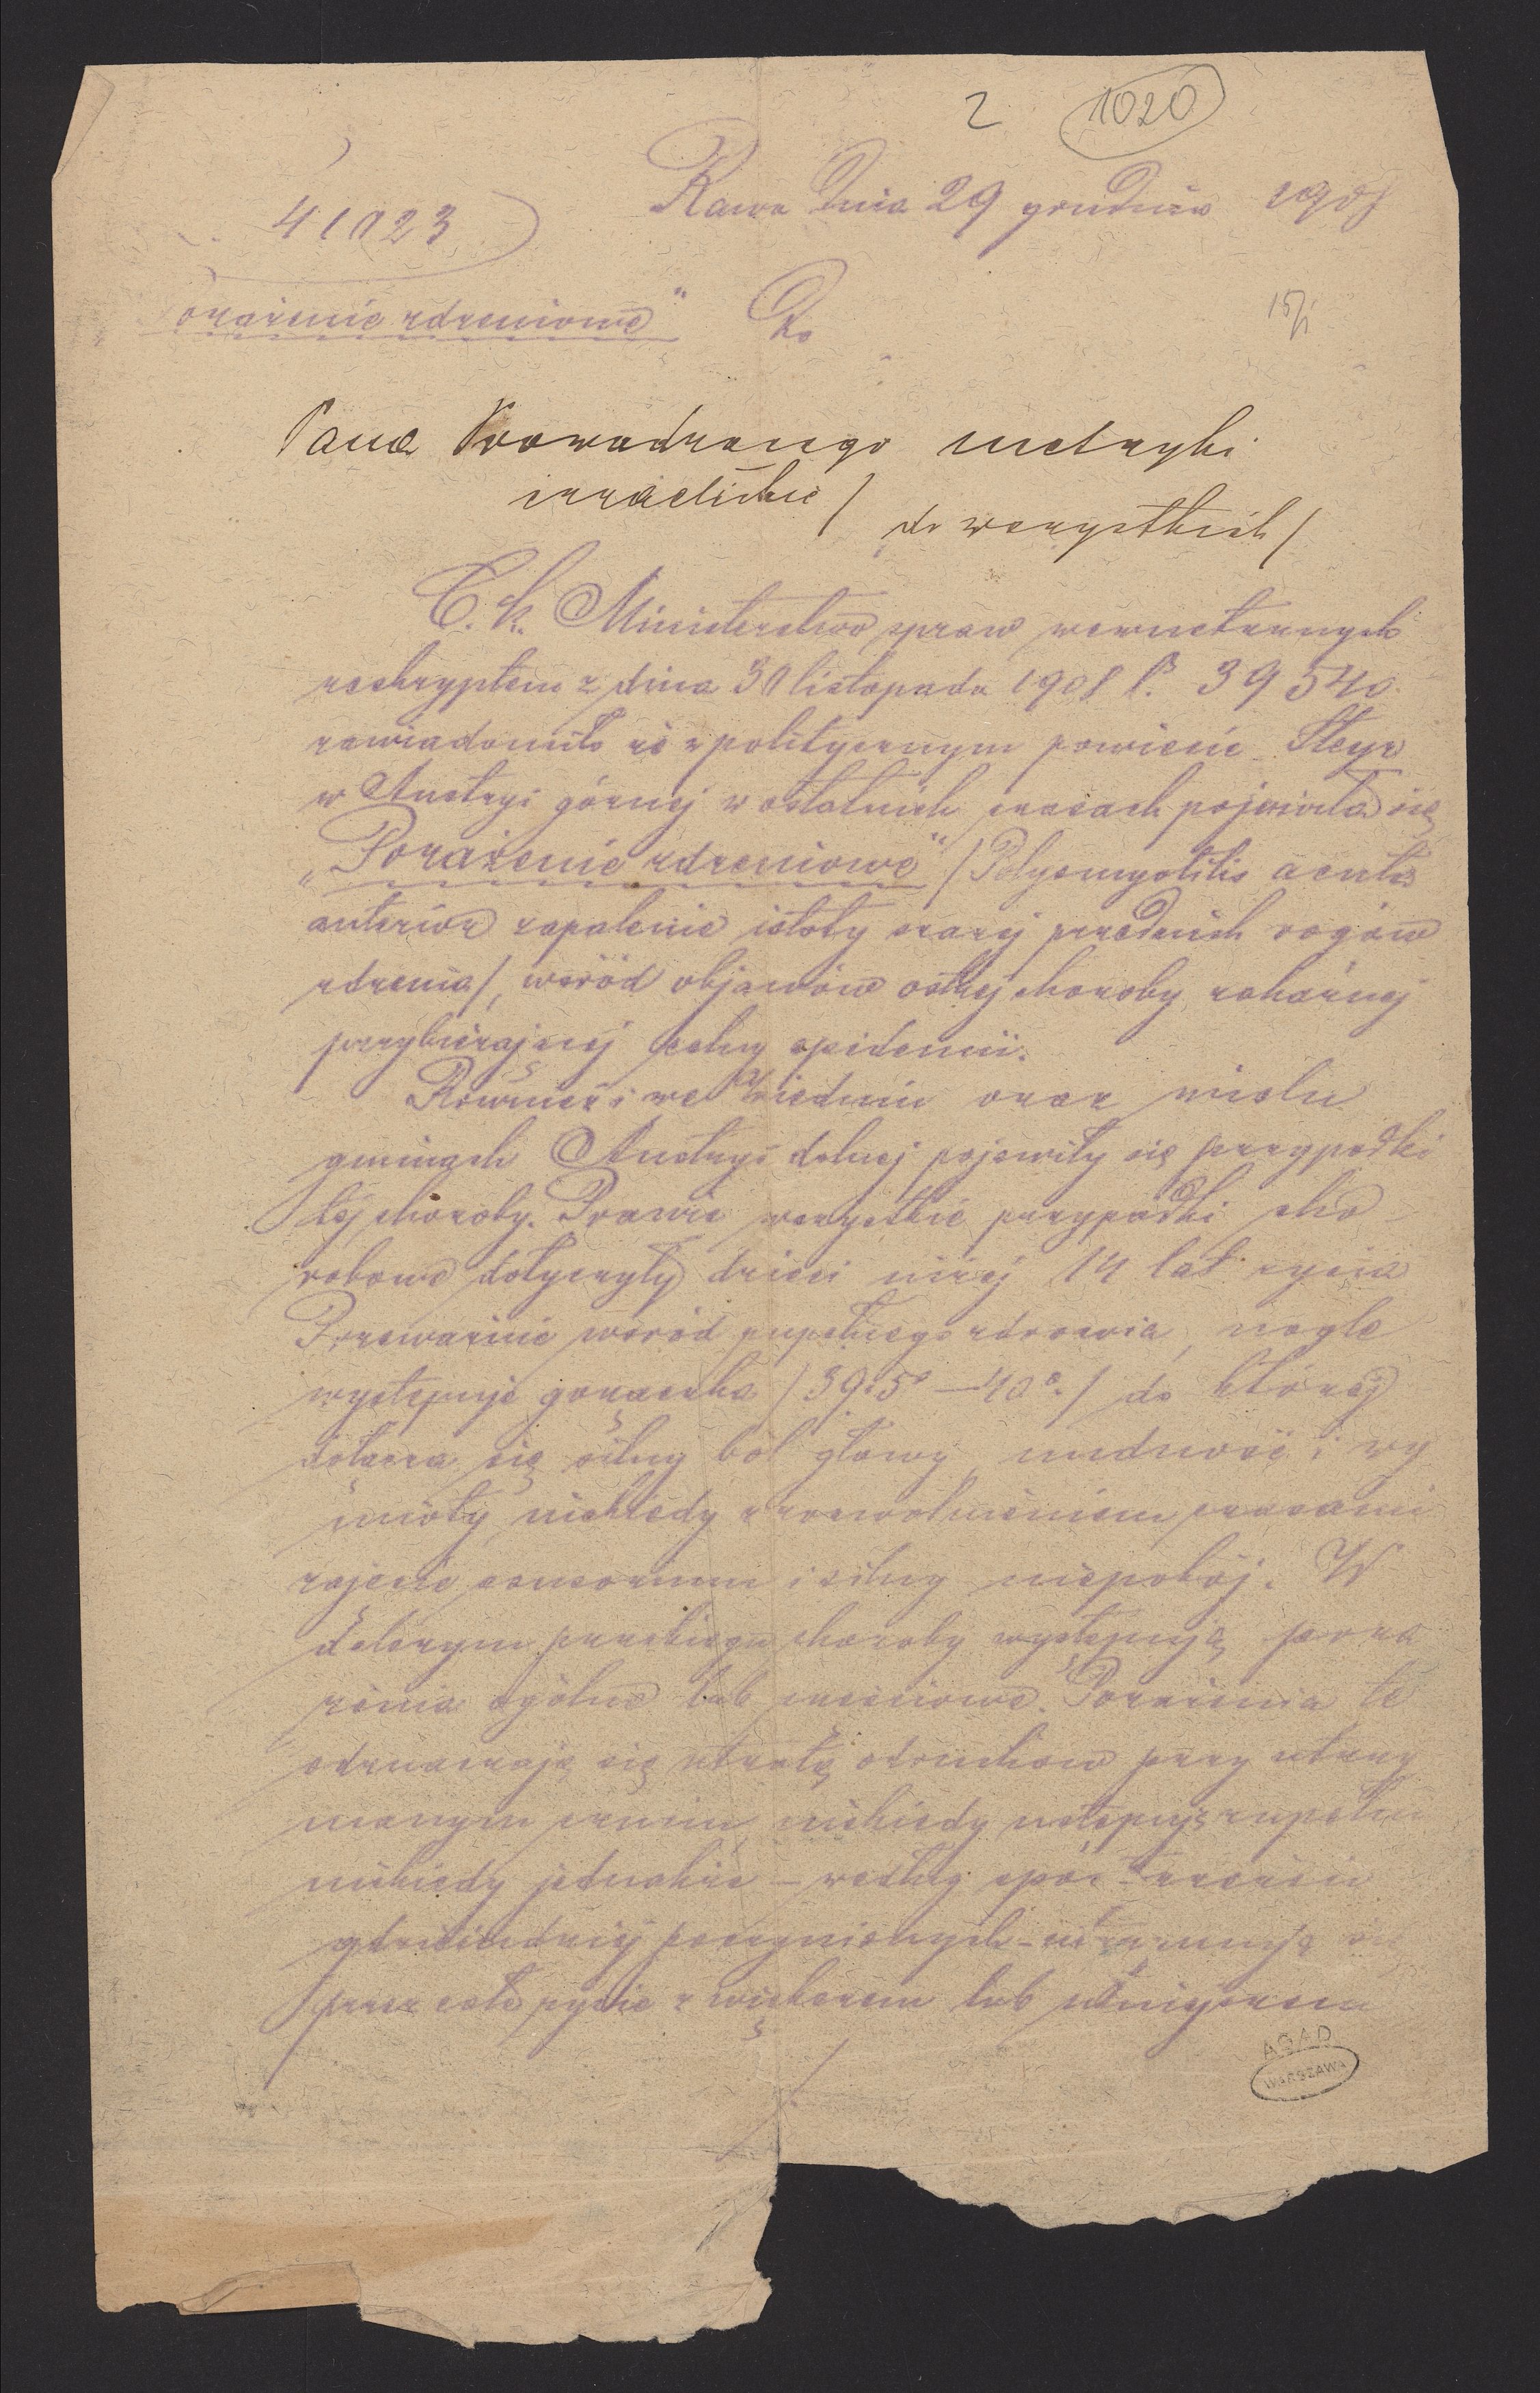 2 1020
Rawa dnia 29 grudnia 1908
41023
orażenie rdzeniowe"
Do
15/1
Pana Prowadzącego metryki
izraelickie /
do wszystkich /
C. k. Ministerstwo spraw wewnetrznych
reskryptem z dnia 30 listopada 1908 l. 39540
zawiadomiło że w politycznym powiecie Steyr
w Austryi górnej w ostatnich czasach pojawiła się
„Porażenie rdzeniowe" / Polyomyolitis acuta
anterior zapalenie istoty szarej przednich rogów
rdzenia /, wsród objawów ostrej choroby zakaźnej
przybierającej cechy epidemii.
Również i we Wiedniu oraz wielu
gminach Austryi dolnej pojawiły się przypadki
tej choroby. Prawie wszystkie przypadki cho
robowe dotyczyły dzieci niżej 14 lat życia
Przeważnie wsród zupełnego zdrowia, nagle
występuje gorączka / 39.5° – 40°. / do której
dołącza się silny ból głowy, nudność i wy
mioty niekiedy z rozwolnieniem czasami
zajęcie sensorium i silny niepokój. W
dalszym przebiegu choroby występują pora
żenia ogólne lub częściowe. Porażenia te
odznaczają się utratą odruchów przy utrzy
manym czuciu niekiedy ustępują zupełnie
niekiedy jednakże – według spostrzeżeń
gdzieindziej poczynionych – utrzymują się
przez całe życie z większem lub mniejszem
./.
AGAD
WARSZAWA